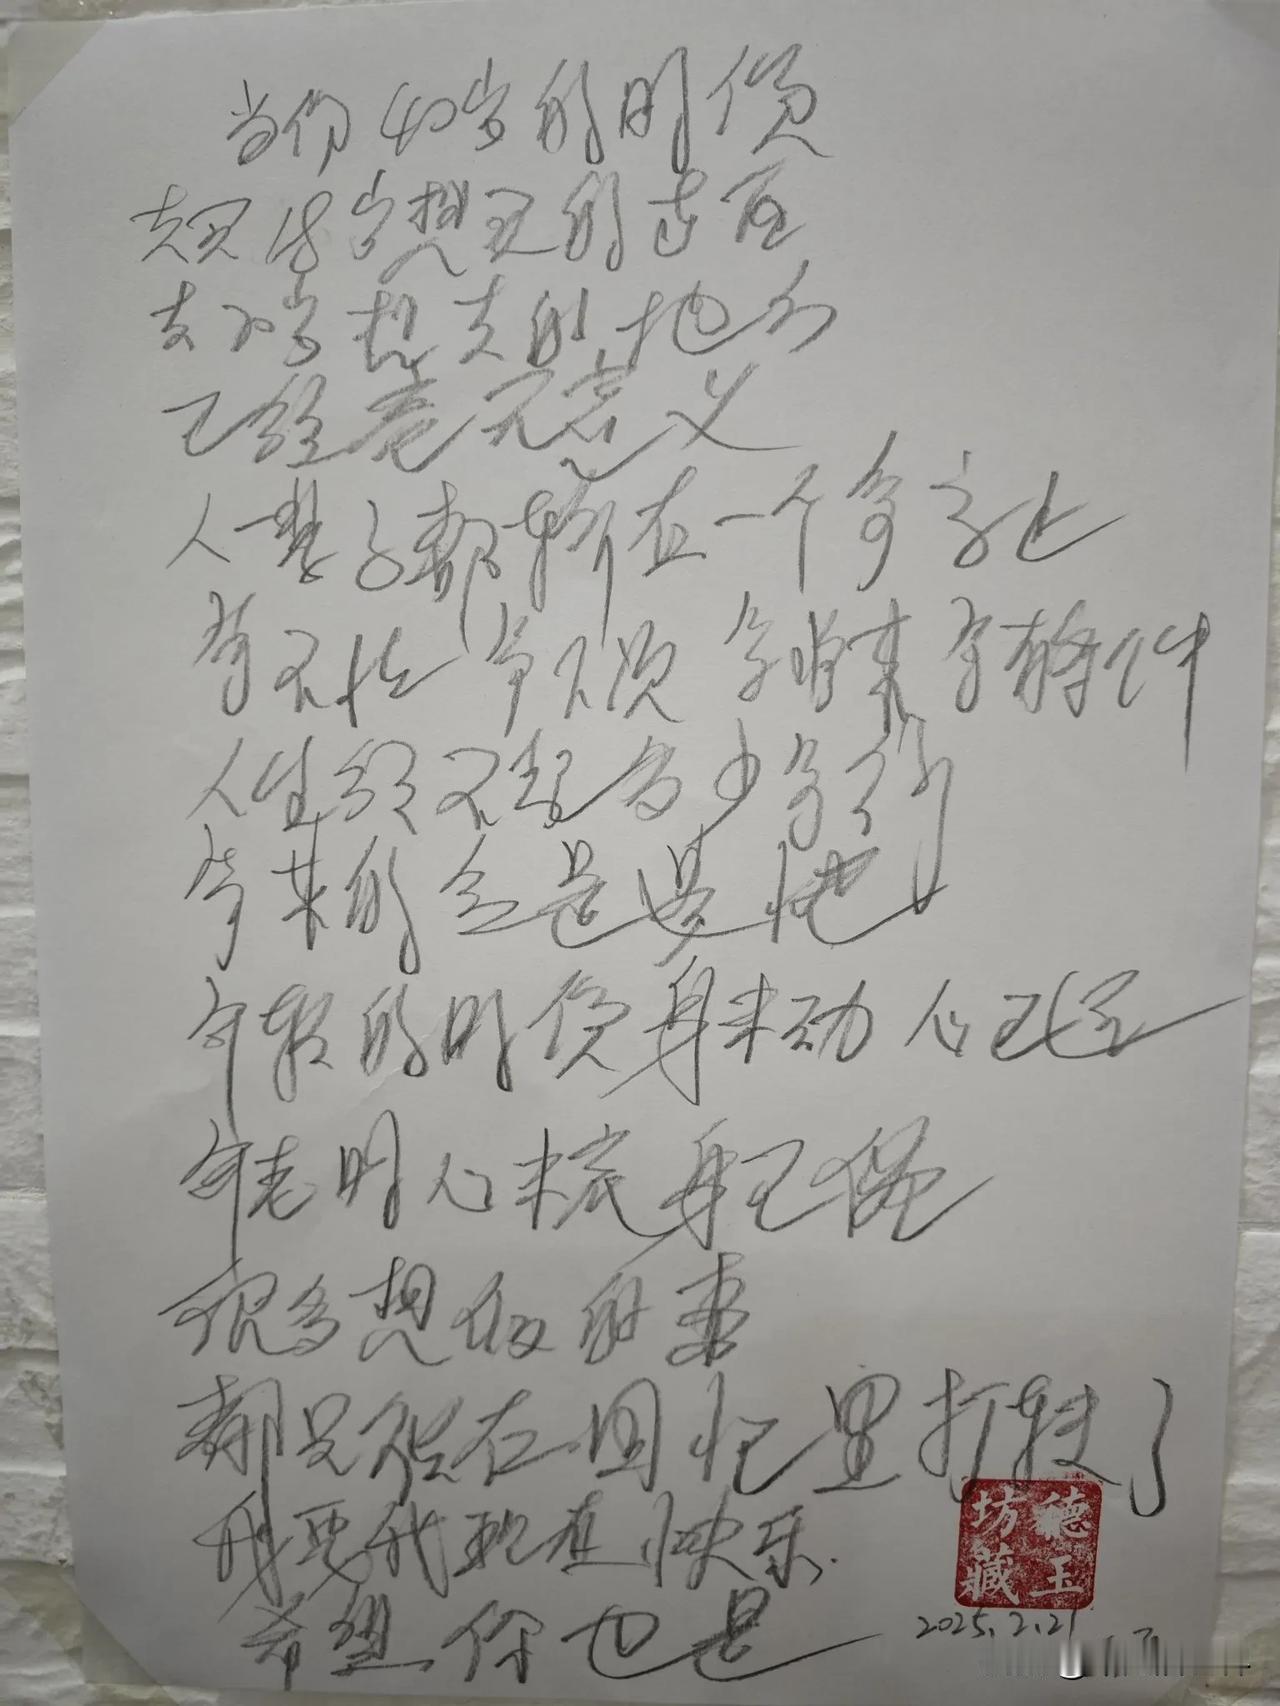 当你40岁的时候
去买18岁想买的东西
去18岁想去的地方
已经毫无意义
人一辈子都折在一个等字上
等不忙 等下次 等将来 等有条件
人生经不起多少等了
等来的全是遗憾
年轻的时候身未动心已远
年老时心未荒身已倦
很多想做的事
都只能在回忆里打转了
我要我现在快乐
希望你也是
德玉坊藏
2025.2.21